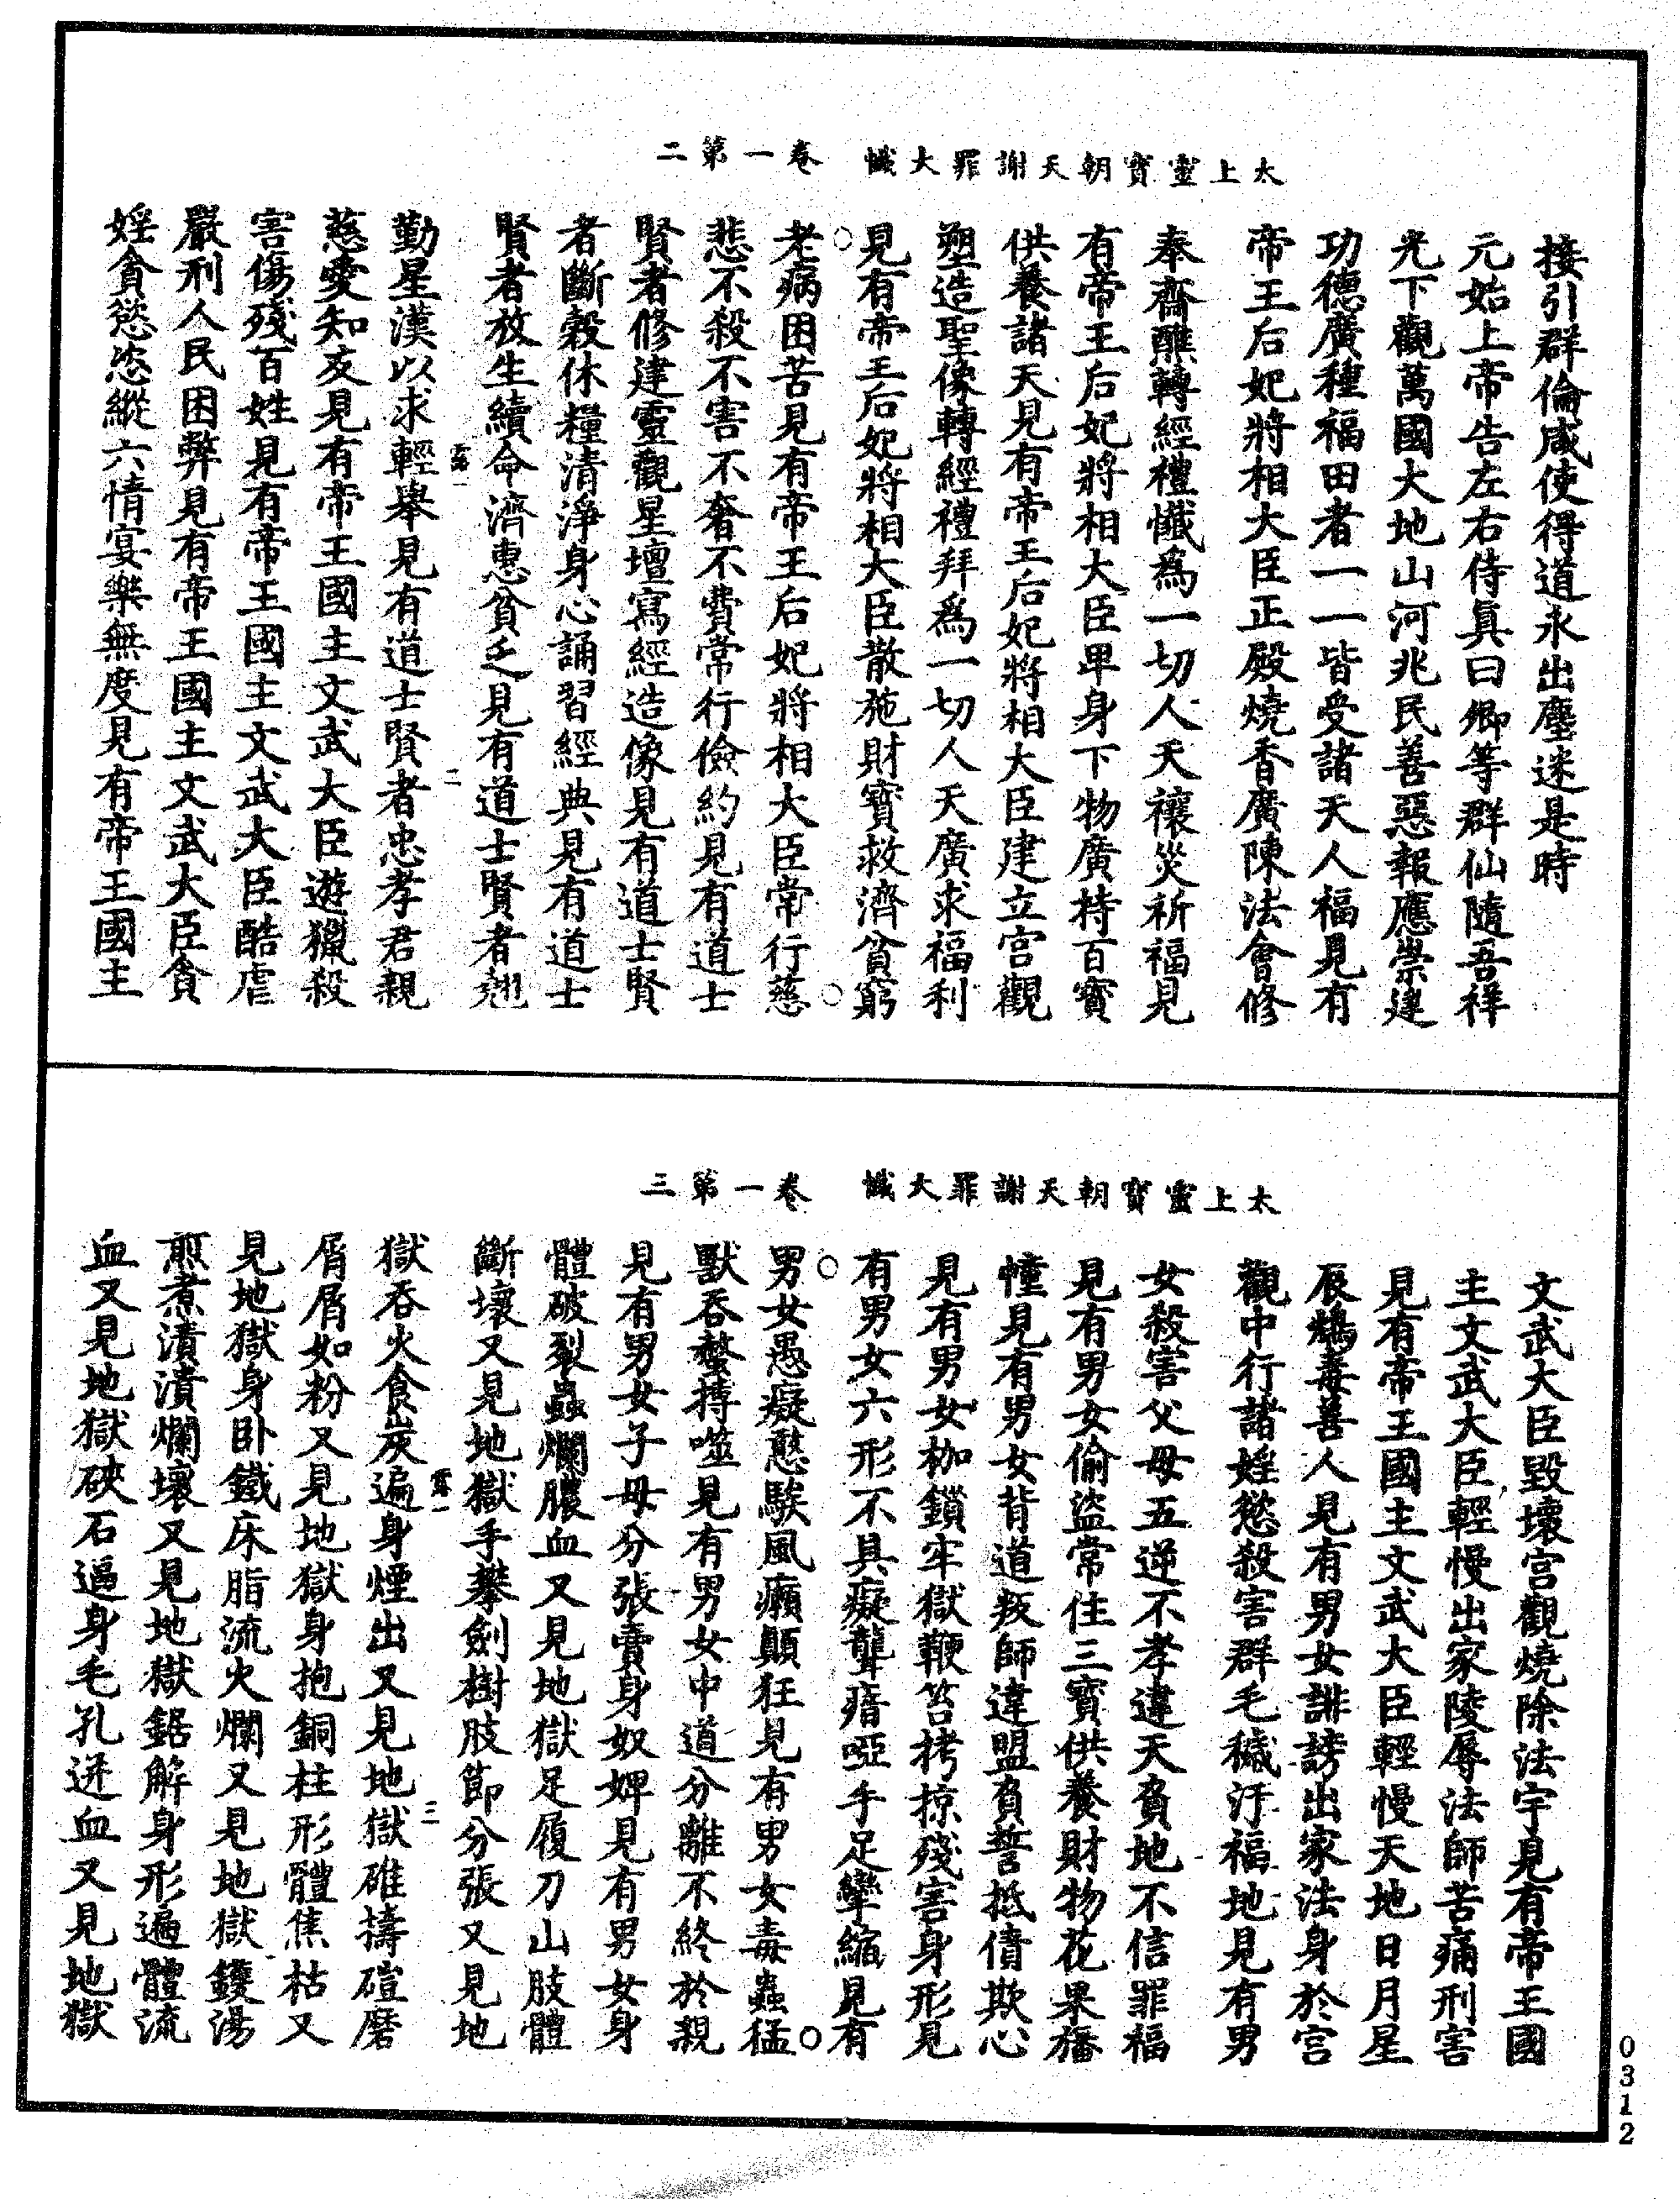 太上靈寶朝天謝罪大懺　卷一第二
接引群倫咸使得道永出塵迷是時
元始上帝告左右侍眞曰卿等群仙隨吾祥
光下觀萬國大地山河兆民善惡報應崇建
功德廣種福田者一一皆受諸天人福見有
帝王后妃將相大臣正殿燒香廣陳法會修
奉齋醮轉經禮懺爲一切人天禳災祈福見
有帝王后妃將相大臣卑身下物廣持百寳
供養諸天見有帝王后妃將相大臣建立宫觀
塑造聖像轉經禮拜爲一切人天廣求福利
見有帝王后妃將相大臣散施財寳救濟貧窮
老病困苦見有帝王后妃將相大臣常行慈
悲不殺不害不奢不費常行儉約見有道士
賢者修建靈觀星壇寫經造像見有道士賢
者斷穀休糧清淨身心誦習經典見有道士
賢者放生續命濟惠貧乏見有道士賢者翹
雲露一　二
勤星漢以求輕舉見有道士賢者忠孝君親
慈愛知友見有帝王國主文武大臣遊獵殺
害傷殘百姓見有帝王國主文武大臣酷虐
嚴刑人民困弊見有帝王國主文武大臣貪
婬貪慾恣縱六情宴樂無度見有帝王國主
太上靈寳朝天謝罪大懺　卷一第三
文武大臣毀壞宫觀燒除法宇見有帝王國
主文武大臣輕慢出家陵辱法師苦痛刑害
見有帝王國主文武大臣輕慢天地日月星
辰鴆毒善人見有男女誹謗出家法身於宫
觀中行諸婬慾殺害群毛穢汙福地見有男
女殺害父母五逆不孝違天負地不信罪福
見有男女偷盜常住三寳供養財物花果旛
幢見有男女背道叛師違盟負誓抵債欺心
見有男女枷鎖牢獄鞭笞拷掠殘害身形見
有男女六形不具癡聾瘖啞手足攣縮見有
男女愚癡憨騃風癲顛狂見有男女毒蟲猛
獸吞螫搏噬見有男女中道分離不終於親
見有男女子母分張賣身奴婢見有男女身
體破裂蟲爛膿血又見地獄足履刀山肢體
斷壞又見地獄手攀劍樹肢節分張又見地
雲露一　三
獄吞火食炭遍身煙出又見地獄碓擣磑磨
屑屑如粉又見地獄身抱銅柱形體焦枯又
見地獄身卧鐵床脂流火爛又見地獄鑊湯
煎煮漬漬爛壞又見地獄鋸解身形遍體流
血又見地獄硤石逼身毛孔迸血又見地獄
0312